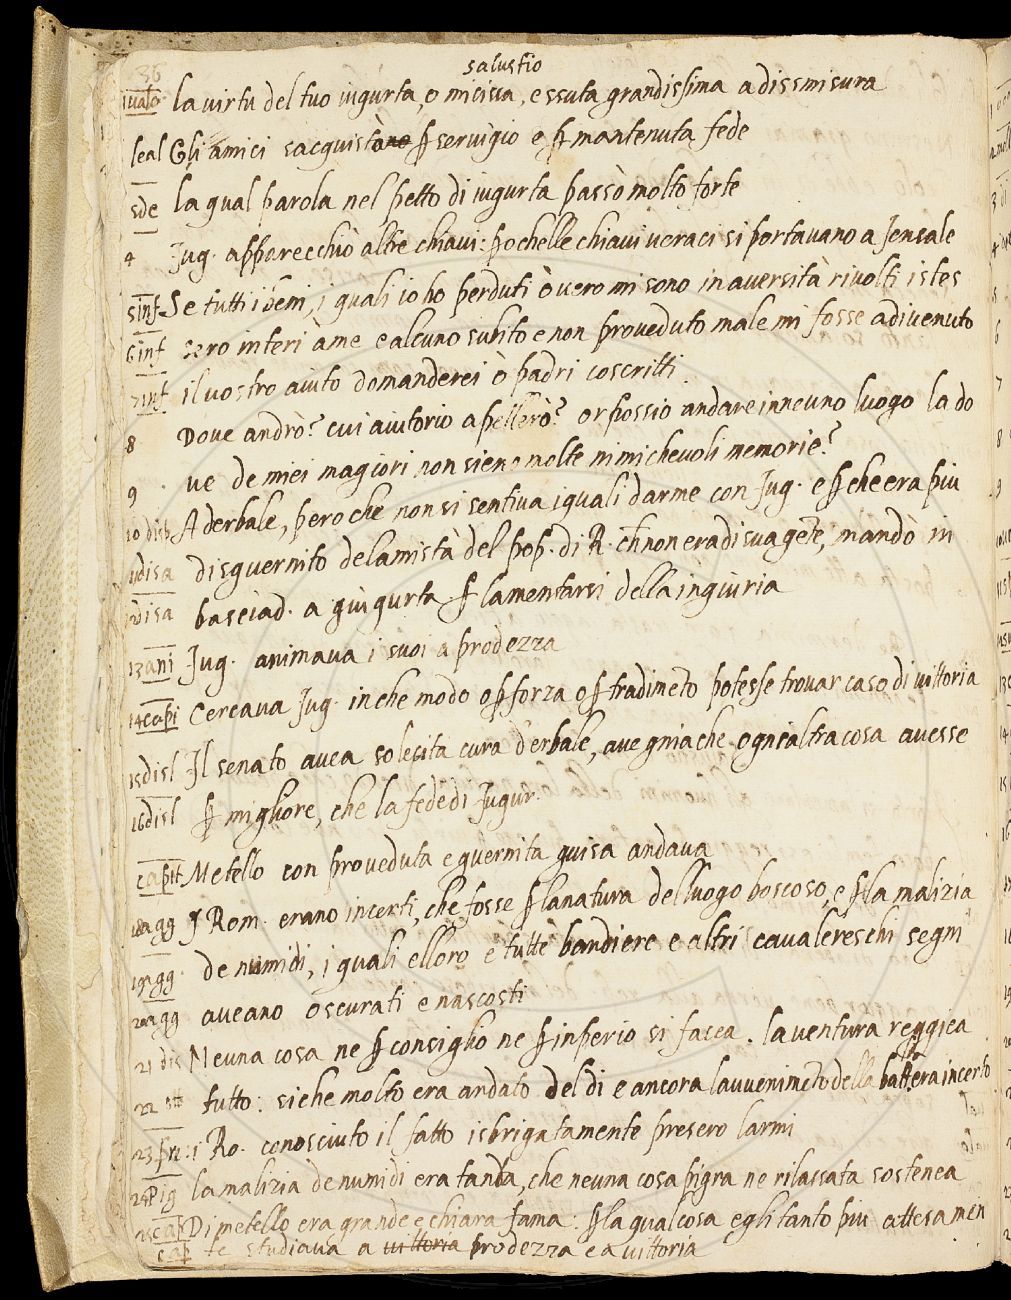 36
salustio
1 valo la virtu del tuo iugurta, o micisia, e ssuta grandissima a dissmisura
leal Gli amici sacquistano ꝑ servigio e ꝑ mantenuta fede
3de la qual parola nel petto di iugurta passò molto forte
4 Jug. apparecchiò altre chiavi: ꝑochelle chiavi veraci si portavano a Jensale
5inf Se tutti i beni, i quali io ho perduti ò vero mi sono in aversità rivolti istes
6inf sero interi à me e alcuno subito e non proveduto male mi fosse adivenuto
7inf il vostro aiuto domanderei ò padri coscritti
8 Dove andrò? cui aiutorio apellerò? or possio andare in nevno luogo la do
9 ve de miei magiori non sieno molte nimichevoli memorie?
10 disb Aderbale, pero che non si sentiva iguali darme con Jug. e ꝑ che era piu
11disa disguernito delamistà del pop. di R. ch̄ non era di sua gēte, mandò in
12disa basciad. a giugurta ꝑ lamentarsi della ingiuria
13ani Jug. animava i suoi a prodezza
14capi Cercava Jug. in che modo o ꝑ forza o ꝑ tradimēto potesse trovar caso di vittoria
15disl Il senato avea solecita cura d'erbale, avegnia che ogni altra cosa avesse
16disl ꝑ migliore, che la fede di Jugur.
capit Metello con proveduta e guernita guisa andava
18agg J Rom. erano incerti, che fosse ꝑ la natura del luogo boscoso, e ꝑ la malizia
19agg. de numidi, i quali elloro e tutte bandiere e altri cavalereschi segni
20agg aveano oscurati e nascosti
21 dis Nevna cosa ne ꝑ consiglio ne ꝑ inperio si facea. la ventura reggiea
22 tutto: siche molto era andato del di e ancora lavvenimēto della batt̄ era incerto
23 pr: i Ro. conosciuto il fatto isbrigatamente presero larmi
24pig la malizia de numidi era tanta, che nevna cosa pigra ne rilassata sostenea
25cap Di metello era grande e chiara fama: ꝑ la qual cosa egli tanto piu attesamen
cap te studiava a vittoria prodezza e a vittoria